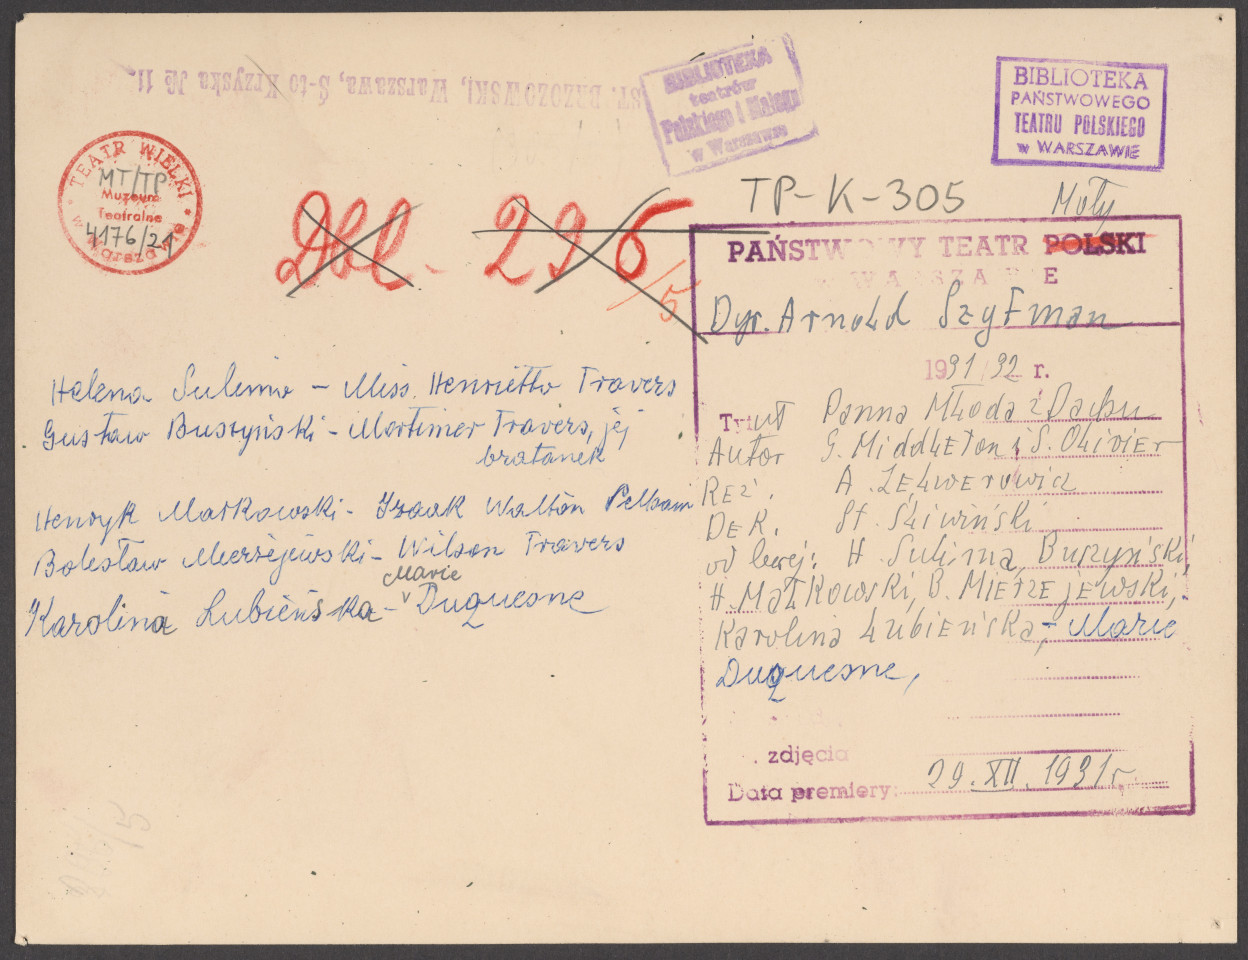 ST. BRZOZOWSKI, Warszawa, Ś-to Krzyska № 11.
BIBLIOTEKA
teatrów
Polskiego i Małego
w Warszawie
BIBLIOTEKA
PAŃSTWOWEGO
TEATRU POLSKIEGO
w WARSZAWIE
TEATR WIELKI
w Warszawie
MT/TP
Muzeum
Teatralne
4176/21
Dbl. 296
/5
TP-K-305
Mały
PAŃSTWOWY TEATR POLSKI
W WARSZAWIE
Dyr. Arnold Szyfman
1931/32 r.
Tytuł Panna Młoda z Dachu
Autor G. Middleton i S. Olivier
Reż. A. Zelwerowicz
Dek. St. Śliwiński
od lewej: H. Sulima, Buszyński,
H. Małkowski, B. Mierzejewski,
Karolina Lubieńska, - Marie
Duquesne,
zdjęcia
Data premiery: 29.XII.1931r.
Helena Sulima - Miss. Henrietta Travers
Gustaw Buszyński - Mortimer Travers, jej
bratanek
Henryk Małkowski - Izaak Walton Pelham
Bolesław Mierzejewski - Wilson Travers
Karolina Lubieńska - Marie Duquesne